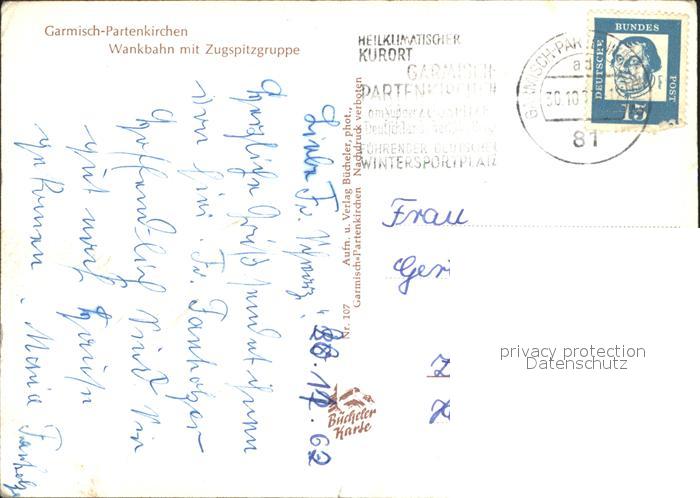 Garmisch-Partenkirchen
Wankbahn mit Zugspitzgruppe
HEILKLIMATISCHER
KURORT
GARMISCH-
PARTENKIRCHEN
FÜHRENDER DEUTSCHER
WINTERSPORTPLATZ
GARMISCH-PARTENKIRCHEN
30.10.
81
DEUTSCHE
BUNDES
POST
15
Nr. 107 Aufn. u. Verlag Bücheler, phot.,
Garmisch-Partenkirchen Nachdruck verboten
Bücheler
Karte
Liebe Fr. Schwarz,
62
Herzliche Grüße sendet Ihnen
von hier. Fr.
Hoffentlich sind Sie
gut nach Hause
gekommen. Maria
Frau
Ger
privacy protection
Datenschutz